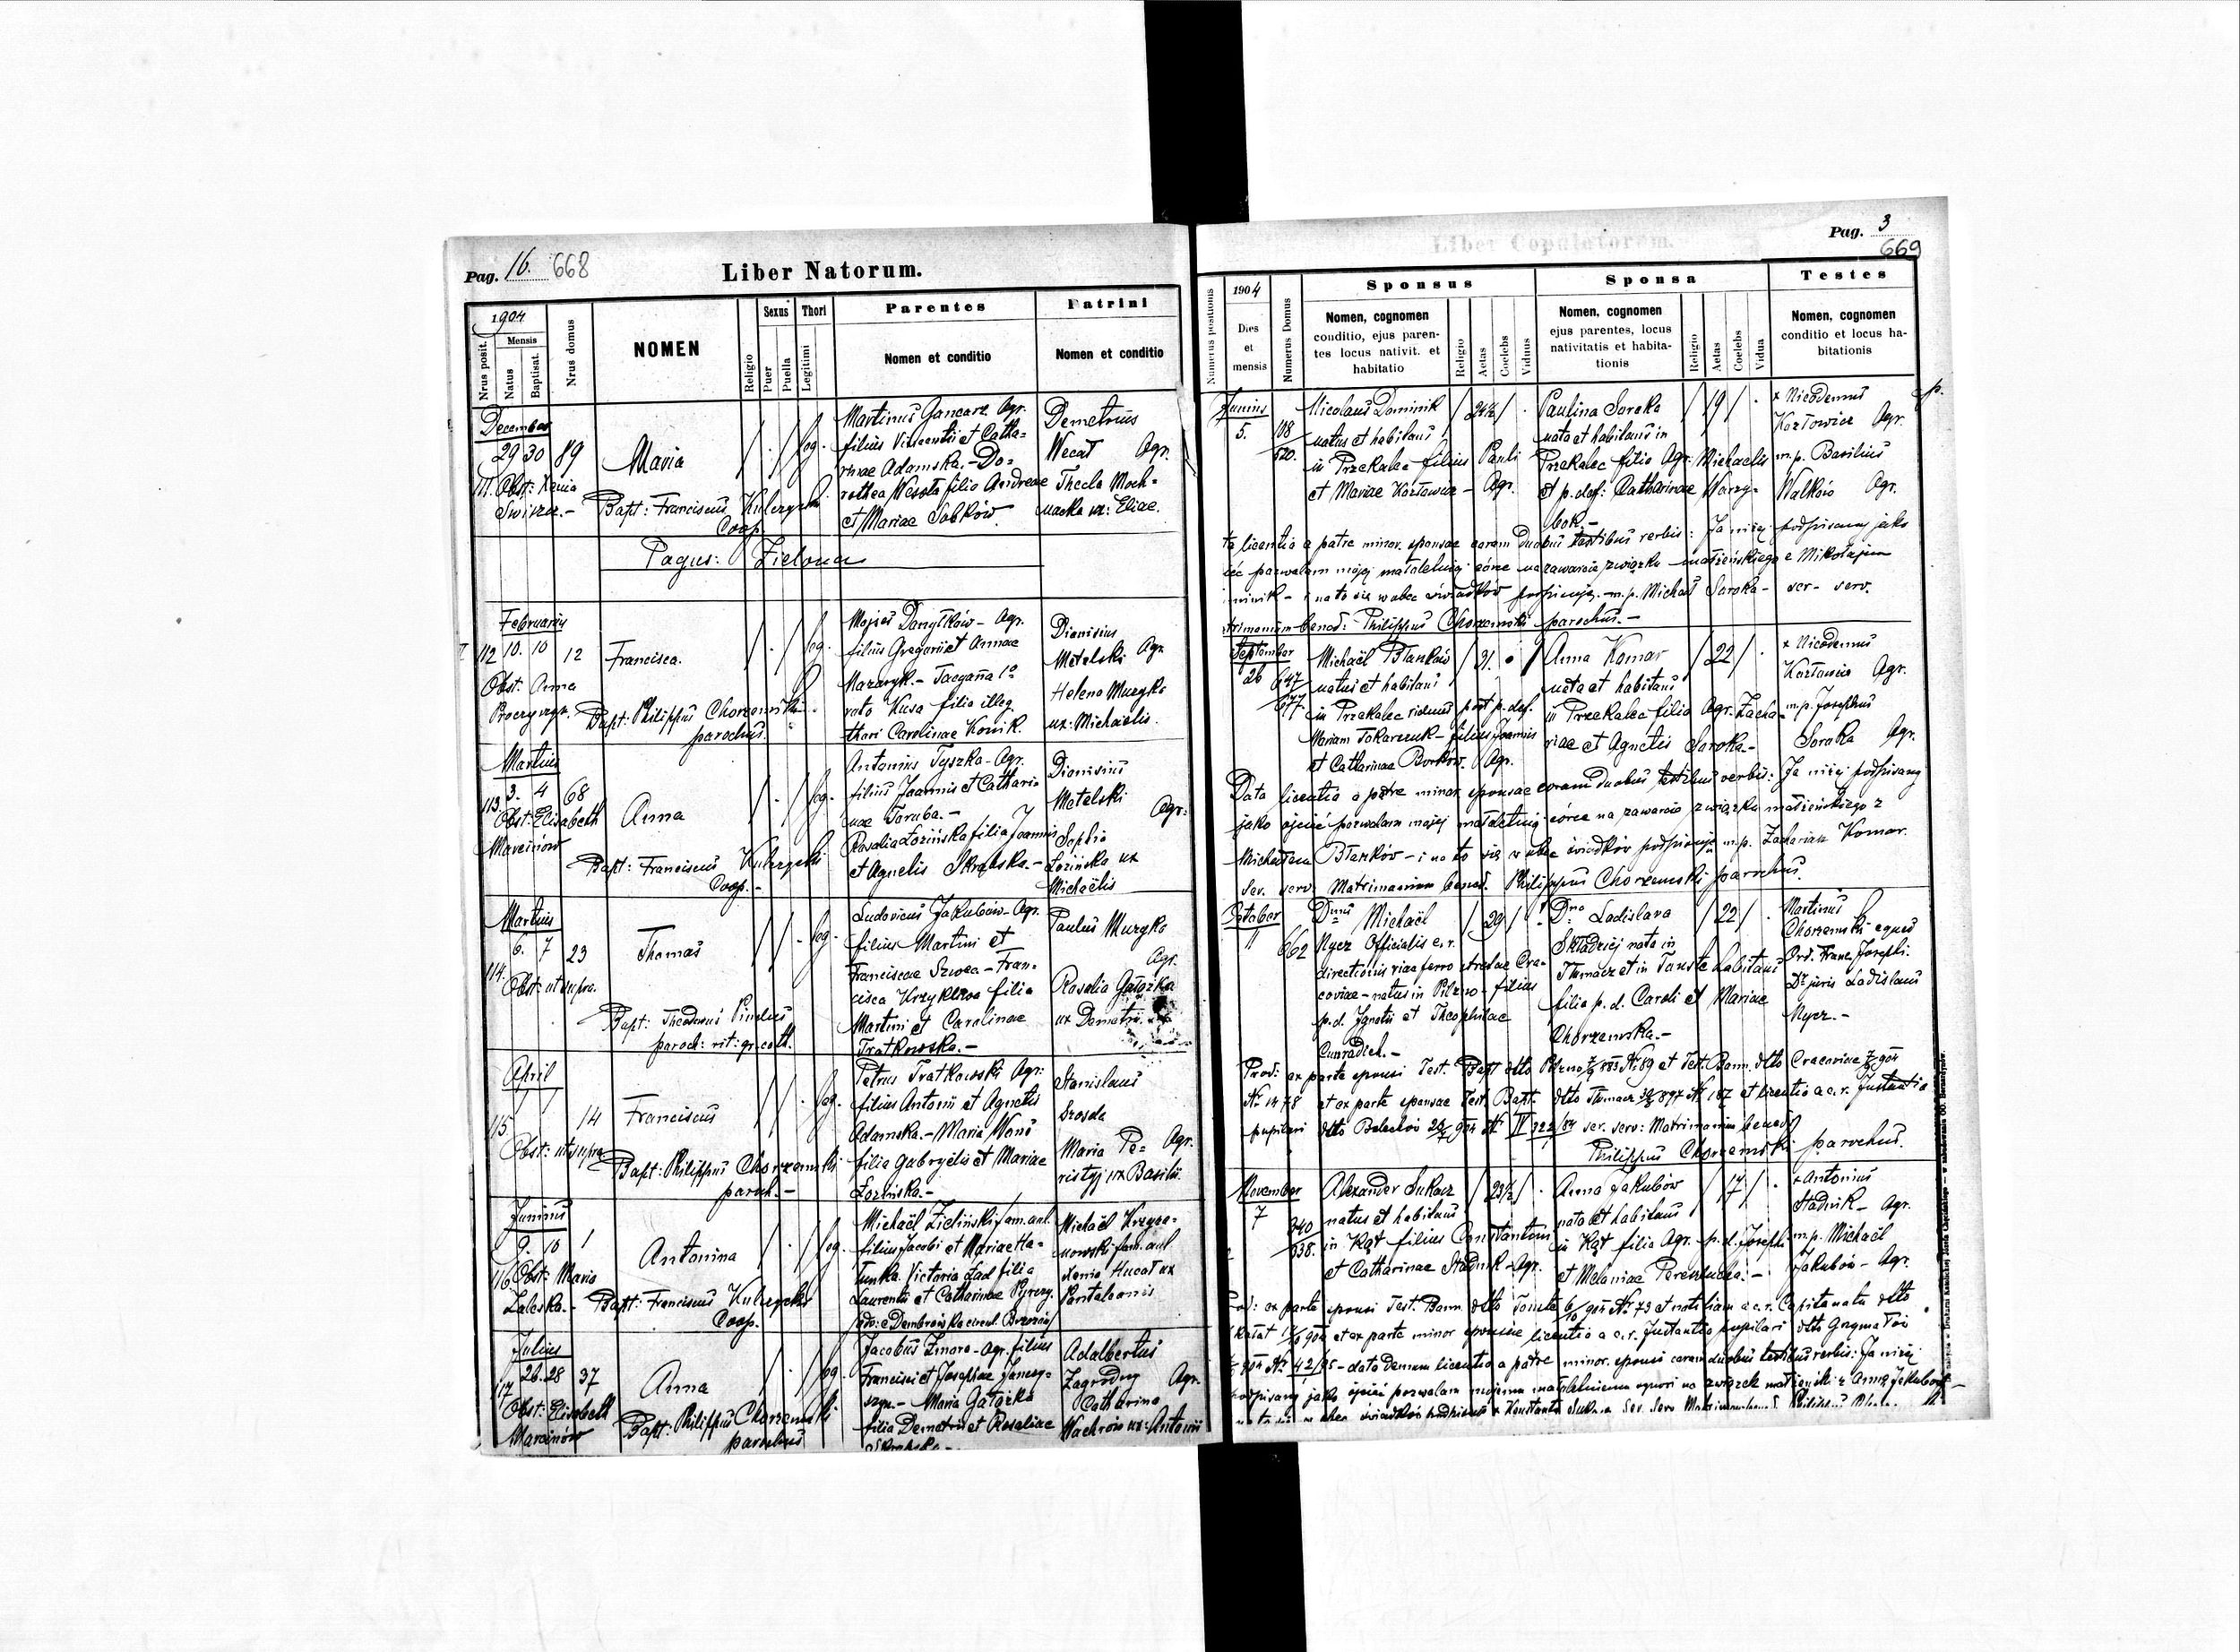 Pag. 16. 668
Liber Natorum.
1904
Mensis
Nrus posit.
Natus
Baptisat.
Nrus domus
NOMEN
Religio
Sexus
Puer
Puella
Thori
Legitimi
Parentes
Nomen et conditio
Patrini
Nomen et conditio
December
29 30 89
111. Obst: Xenia
Maria
leg.
Bapt: Franciscus Kulczycki
Coop.
Martinus Gancarz Agr.
filius Vincentii et Catha=
rinae Adamska.- Do=
rothea filia Andreae
et Mariae Sobków.
Demetrius
Wecal Agr.
Thecla Moch=
nacka ux: Eliae.
Pagus: Zielona
Februarius
112 10. 10 12
Obst. Anna
Francisca.
leg.
Bapt: Philippus Chorzemski
parochus.
Mojses Danylków - Agr.
filius Gregorii et Annae
Mazuryk.-
nato Kusa filia illeg.
thori Carolinae Kownik.
Dionisius
Metelski Agr.
Helena Muzyka
ux: Michaelis.
Martius
113. 3. 4 68
Obst: Elisabeth
Marcinów
Anna
leg.
Bapt: Franciscus Kulczycki
Coop.-
Antonius Tyszka - Agr.
filius Joannis et Cathari=
nae Taruba.-
Rosalia Łozińska filia Joannis
et Agnetis Skrabska.-
Dionisius
Metelski Agr.
Sophia
Łozińska ux
Michaëlis
Martius
6. 7 23
114.
Obst: ut supra.
Thomas
leg.
Bapt: Theodorus
paroch: rit: gr. cath.
Ludovicus Jakubów - Agr.
filius Martini et
Franciscae Szwec - Fran=
cisca filia
Martini et Carolinae
Tratkowska.-
Paulus Muzyka
Agr.
Rosalia Gałązka
ux Demetrii.
April
1 1 14
115
Obst: ut supra
Franciscus
leg.
Bapt: Philippus Chorzemski
paroch.-
Petrus Tratkowski Agr:
filius Antonii et Agnetis
Adamska.- Maria
filia Gabryelis et Mariae
Łozińska.-
Stanislaus
Drozda
Agr.
Maria Pe=
ristyj ux Basilii.
Junius
9. 10 1
116 Obst: Maria
Zaleska.-
Antonina
leg.
Bapt: Franciscus Kulczycki
Coop.
Michaël Zieliński fam. aul.
filius Jacobi et Mariae
Victoria Zad filia
Laurentii et Catharinae
Michaël Krzyża=
nowski fam. aul
Xenia Hucał ux
Pantaleonis
Julius
26. 28 37
117
Obst: Elisabeth
Marcinów
Anna
leg.
Bapt: Philippus Chorzemski
parochus
Jacobus Zmora - Agr. filius
Francisci et Josephae
Maria Gałązka
filia Demetrii et Rosaliae
Adalbertus
Zagrodny Agr.
Catharina
Wachrów ux: Antonii
Pag. 3
669
Liber Copulatorum.
Numerus positionis
1904
Dies
et
mensis
Numerus Domus
Sponsus
Nomen, cognomen
conditio, ejus paren-
tes locus nativit. et
habitatio
Religio
Aetas
Coelebs
Viduus
Sponsa
Nomen, cognomen
ejus parentes, locus
nativitatis et habita-
tionis
Religio
Aetas
Coelebs
Vidua
Testes
Nomen, cognomen
conditio et locus ha-
bitationis
Junius
5. 108
520.
Nicolaus Dominik
natus et habitans
in Przekalec filius Pauli
et Mariae Kozłowicz - Agr.
24½
Paulina Soroka
nata et habitans in
Przekalec filia Agr. Michaelis
et p. def: Catharinae Warzy-
bok.-
19
+ Nicodemus
Kozłowicz Agr.
m.p. Basilius
Walków Agr.
ta licentia a patre minor. sponsae coram duobus testibus verbis: Ja niżej podpisany jako
iec pozwalam mojej małoletniej córce na zawarcie związku małżeńskiego z Mikołajem
minik - i na to się wobec świadków podpisuję.- m.p. Michał Soroka - ser. serv.
atrimonium bened: Philippus Chorzemski parochus.-
September
26 647
677
Michaël Blarków
natus et habitans
in Przekalec viduus post p. def.
Mariam Tokarczuk - filius Joannis
et Catharinae Borków. Agr.
31.
Anna Komar
nata et habitans
in Przekalec filia Agr. Zacha=
riae et Agnetis Soroka.-
22
+ Nicodemus
Kozłowicz Agr.
m.p. Josephus
Soroka Agr.
Data licentia a patre minor. sponsae coram duobus testibus verbis: Ja niżej podpisany
jako ojciec pozwalam mojej małoletniej córce na zawarcie związku małżeńskiego z
Michałem Blarków - i na to się wobec świadków podpisuję m.p. Zachariasz Komar.
Ser. serv. Matrimonium bened. Philippus Chorzemski parochus.
October
11 662
Dnus Michaël
Nycz Officialis c. r.
directionis viae ferro stratae Cra=
coviae - natus in Pilzno - filius
p.d. Ignatii et Theophilae
Cunradich.-
29
Dna Ladislava
Składziej nata in
Tłumacz et in Touste habitans
filia p. d. Caroli et Mariae
Chorzemska.-
22
Martinus
Chorzemski eques
Ord. Franc. Josephi.
Dr juris Ladislaus
Nycz.-
Prod: ex parte sponsi Test. Bapt dtto Pilzno № 89 et Test. Bann. dtto Cracoviae
№ 1478 et ex parte sponsae Test. Bapt. dtto Tłumacz № 187 et licentia a c. r. Instantia
pupilari dtto Bolechów № IV 322/84 ser. serv: Matrimonium bened
Philippus Chorzemski parochus.
November
7 340
338.
Alexander Sukacz
natus et habitans
in Kąt filius Constantini
et Catharinae Stadnik - Agr.
23½
Anna Jakubów
nata et habitans
in Kąt filia Agr. p. d. Josephi
et Melaniae
17
+ Antonius
Stadnik - Agr.
m.p. Michaël
Jakubów - Agr.
Prod: ex parte sponsi Test. Bann. dtto Touste № 73 et notitiam a c. r. Capitanatu dtto
Skałat et ex parte minor sponsae licentia a c. r. Instantia pupilari dtto Grzymałów
№ 42/95 - data demum licentia a patre minor. sponsi coram duobus testibus verbis: Ja niżej
podpisany jako ojciec pozwalam mojemu małoletniemu synowi na związek małżeński z Anną Jakubów -